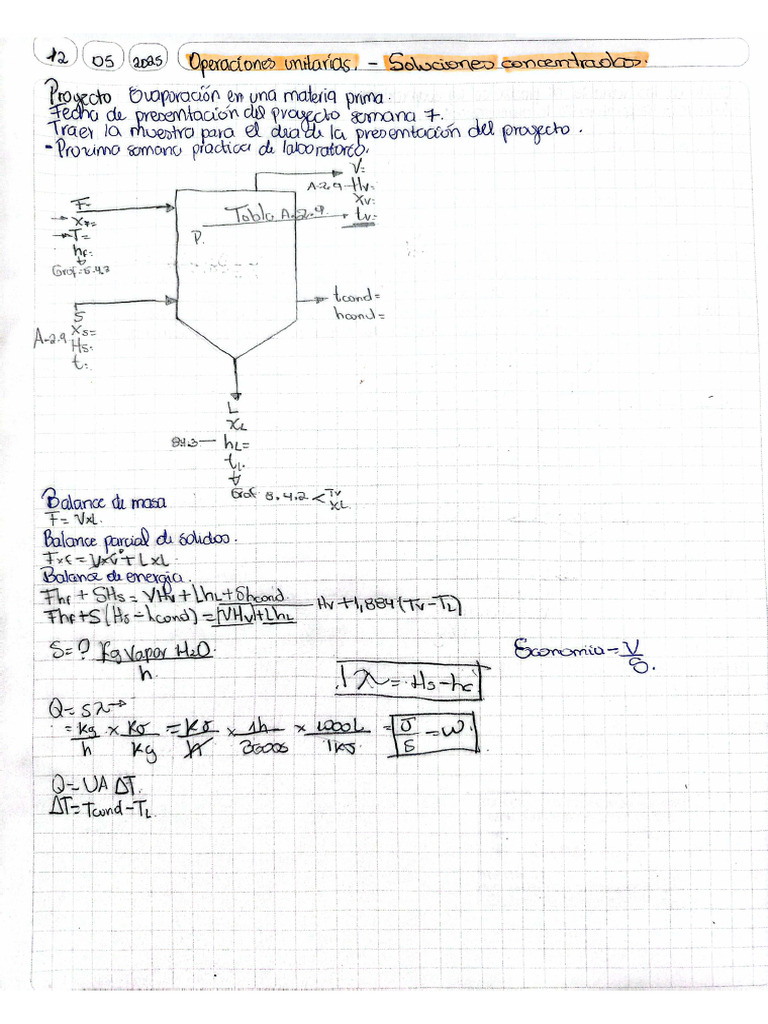 12 05 2025 Operaciones unitarias. - Soluciones concentradas.
Proyecto Evaporación en una materia prima.
Fecha de presentación del proyecto semana 7.
Traer la muestra para el dia de la presentación del proyecto.
- Proxima semana practica de laboratorio.
V=
A-2.9 - Hv=
xv=
tv=
Tabla A-2.9.
P.
F=
xF=
T=
hf=
Graf. 5.4.3
tcond=
hcond=
S
xs=
A-2.9
Hs=
t=
L
xL
8.4.3 — hL=
tL
Graf 8.4.2 < Tv
xL
Balance de masa
F= VxL.
Balance parcial de solidos.
Fxf = Vxv° + LxL
Balance de energia.
Fhf + SHs = VHv + LhL + Shcond.
Fhf + S(Hs - hcond) = VHv + LhL — Hv + 1,884 (Tv - TL)
S=? Kg Vapor H2O.
h.
Economia = V
S.
λ = Hs - hc
Q = Sλ →
= kg/h x KJ/Kg = KJ/h x 1h/3600s x 1000J/1KJ = J/s = W.
Q = UA ΔT.
ΔT = Tcond - TL